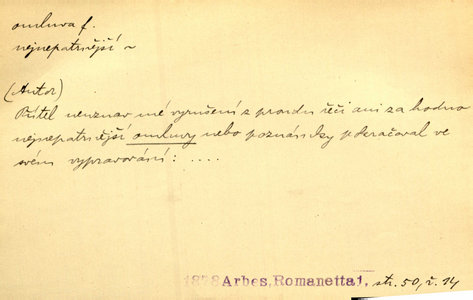 omluva f.
nejnepatrnější ~
(Autor)
Přítel neuznav mé vyrušení z proudu řeči ani za hodno
nejnepatrnější omluvy nebo poznámky pokračoval ve
svém vypravování: ....
1878 Arbes, Romanetta 1, str. 50, ř. 14